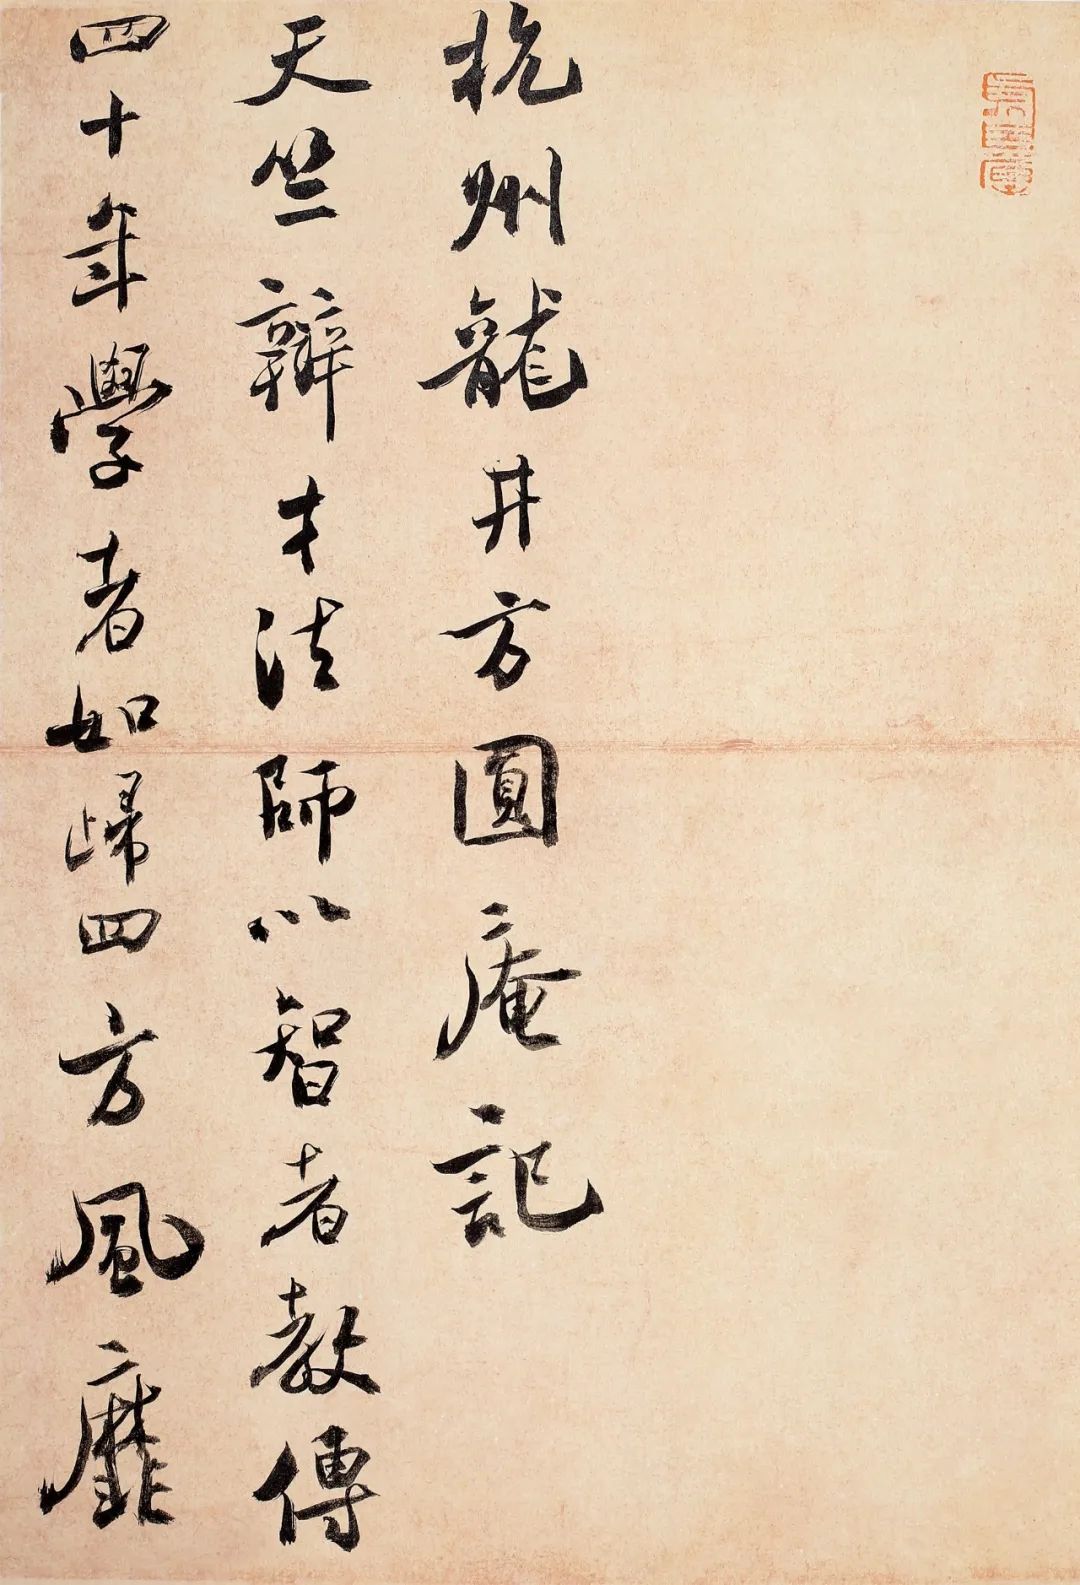 杭州龍井方圓庵記
天竺辯才法師以智者教傳
四十年學者如歸四方風靡